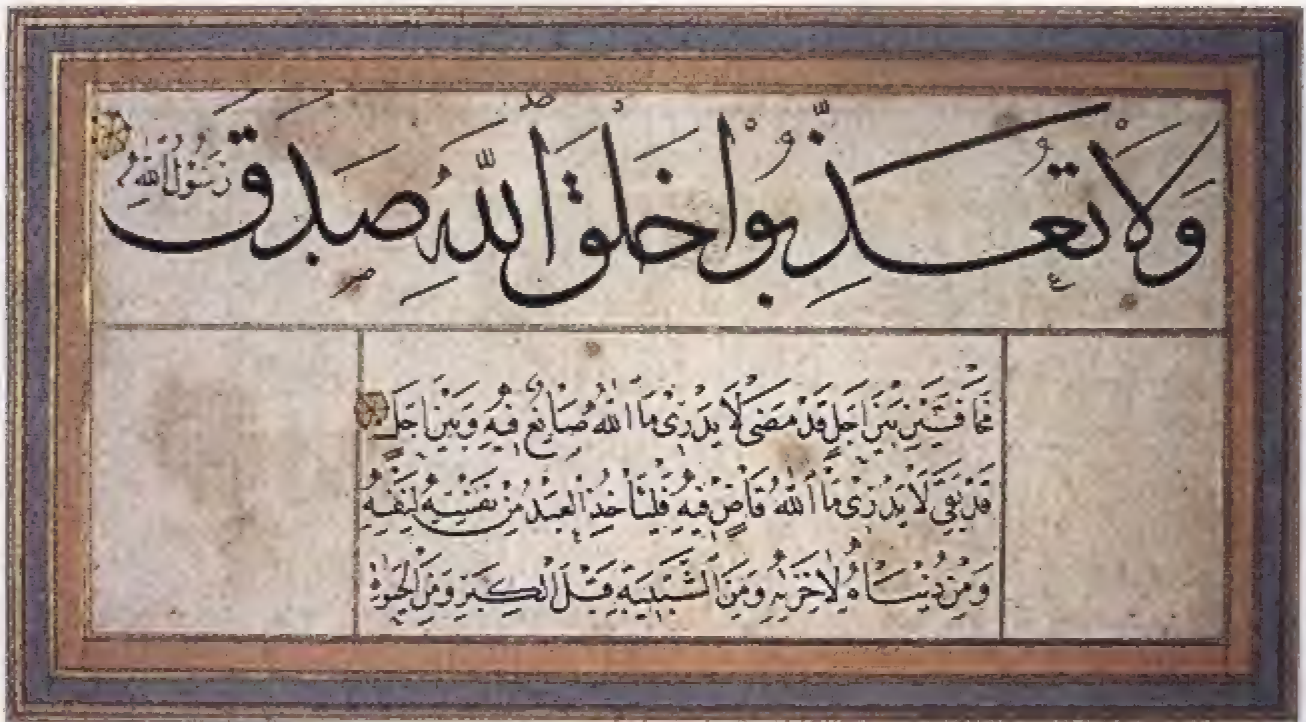 وَلَا تُعَذِّبُوا خَلْقَ اللّٰهِ صَدَقَ رَسُولُ اللّٰهِ
مَخَافَتَيْنِ بَيْنَ اَجَلٍ قَدْ مَضٰى لَا يَدْرٖى مَا اللّٰهُ صَانِعٌ فٖيهِ وَبَيْنَ اَجَلٍ
قَدْ بَقِىَ لَا يَدْرٖى مَا اللّٰهُ قَاضٍ فٖيهِ فَلْيَاْخُذِ الْعَبْدُ مِنْ نَفْسِهٖ لِنَفْسِهٖ
وَمِنْ دُنْيَاهُ لِاٰخِرَتِهٖ وَمِنَ الشَّبٖيبَةِ قَبْلَ الْكِبَرِ وَمِنَ الْحَيٰوةِ